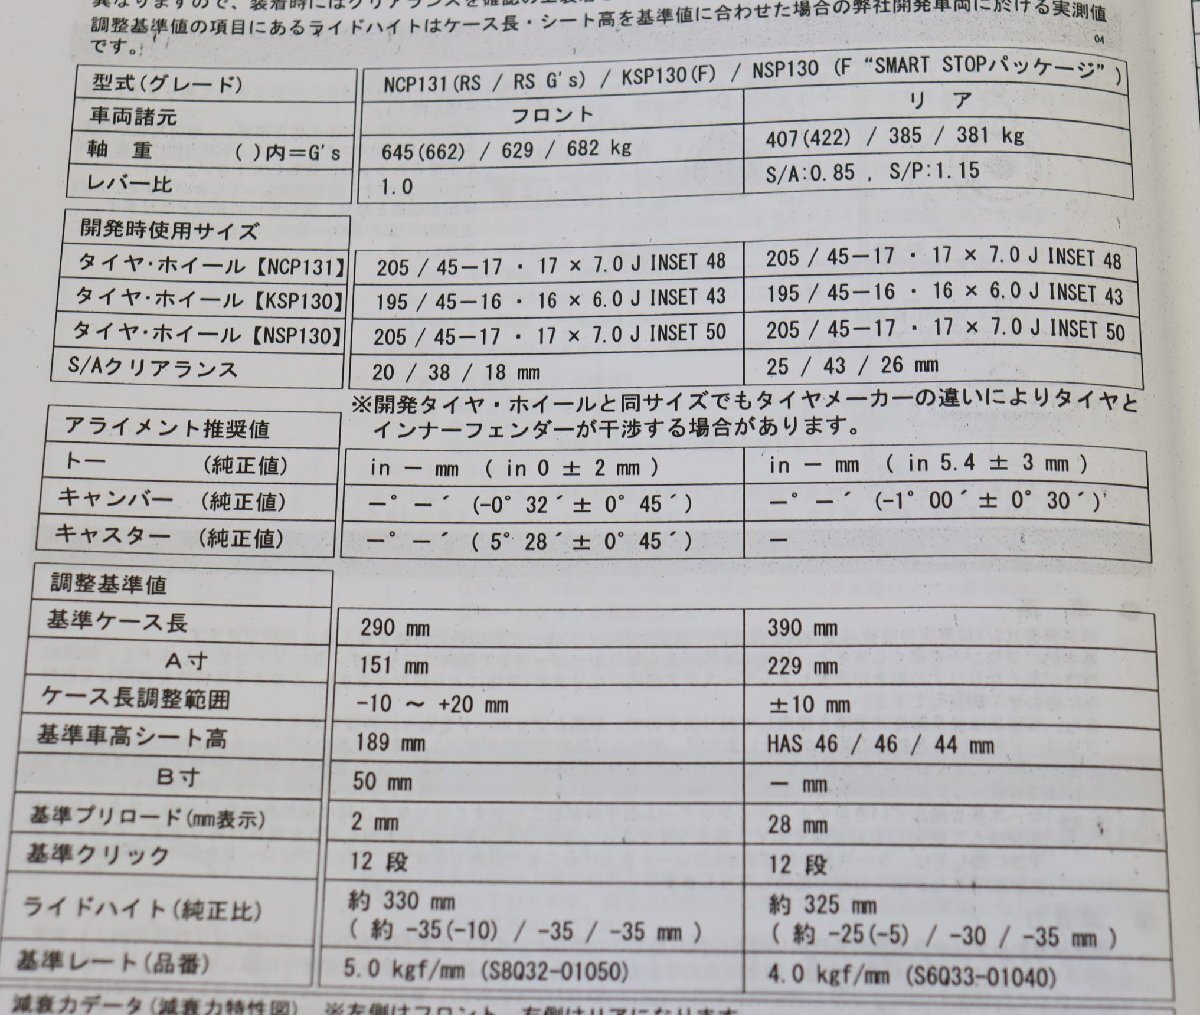 異なりますので、装着時にはクリアランスを確認の上装着
調整基準値の項目にあるライドハイトはケース長・シート高を基準値に合わせた場合の弊社開発車両に於ける実測値
です。
04
型式(グレード) NCP131(RS / RS G's) / KSP130(F) / NSP130 (F “SMART STOPパッケージ”)
車両諸元 フロント リア
軸 重 ( )内=G's 645(662) / 629 / 682 kg 407(422) / 385 / 381 kg
レバー比 1.0 S/A:0.85 , S/P:1.15
開発時使用サイズ
タイヤ・ホイール【NCP131】 205 / 45-17 ・ 17 × 7.0 J INSET 48 205 / 45-17 ・ 17 × 7.0 J INSET 48
タイヤ・ホイール【KSP130】 195 / 45-16 ・ 16 × 6.0 J INSET 43 195 / 45-16 ・ 16 × 6.0 J INSET 43
タイヤ・ホイール【NSP130】 205 / 45-17 ・ 17 × 7.0 J INSET 50 205 / 45-17 ・ 17 × 7.0 J INSET 50
S/Aクリアランス 20 / 38 / 18 mm 25 / 43 / 26 mm
※開発タイヤ・ホイールと同サイズでもタイヤメーカーの違いによりタイヤと
インナーフェンダーが干渉する場合があります。
アライメント推奨値
トー (純正値) in － mm ( in 0 ± 2 mm ) in － mm ( in 5.4 ± 3 mm )
キャンバー (純正値) －° －´ (-0° 32´± 0° 45´) －° －´ (-1° 00´± 0° 30´)
キャスター (純正値) －° －´ ( 5° 28´± 0° 45´) －
調整基準値
基準ケース長 290 mm 390 mm
A寸 151 mm 229 mm
ケース長調整範囲 -10 ～ +20 mm ±10 mm
基準車高シート高 189 mm HAS 46 / 46 / 44 mm
B寸 50 mm － mm
基準プリロード(mm表示) 2 mm 28 mm
基準クリック 12 段 12 段
ライドハイト(純正比) 約 330 mm 約 325 mm
( 約 -35(-10) / -35 / -35 mm ) ( 約 -25(-5) / -30 / -35 mm )
基準レート(品番) 5.0 kgf/mm (S8Q32-01050) 4.0 kgf/mm (S6Q33-01040)
減衰力データ(減衰力特性図) ※左側はフロント、右側はリアになります